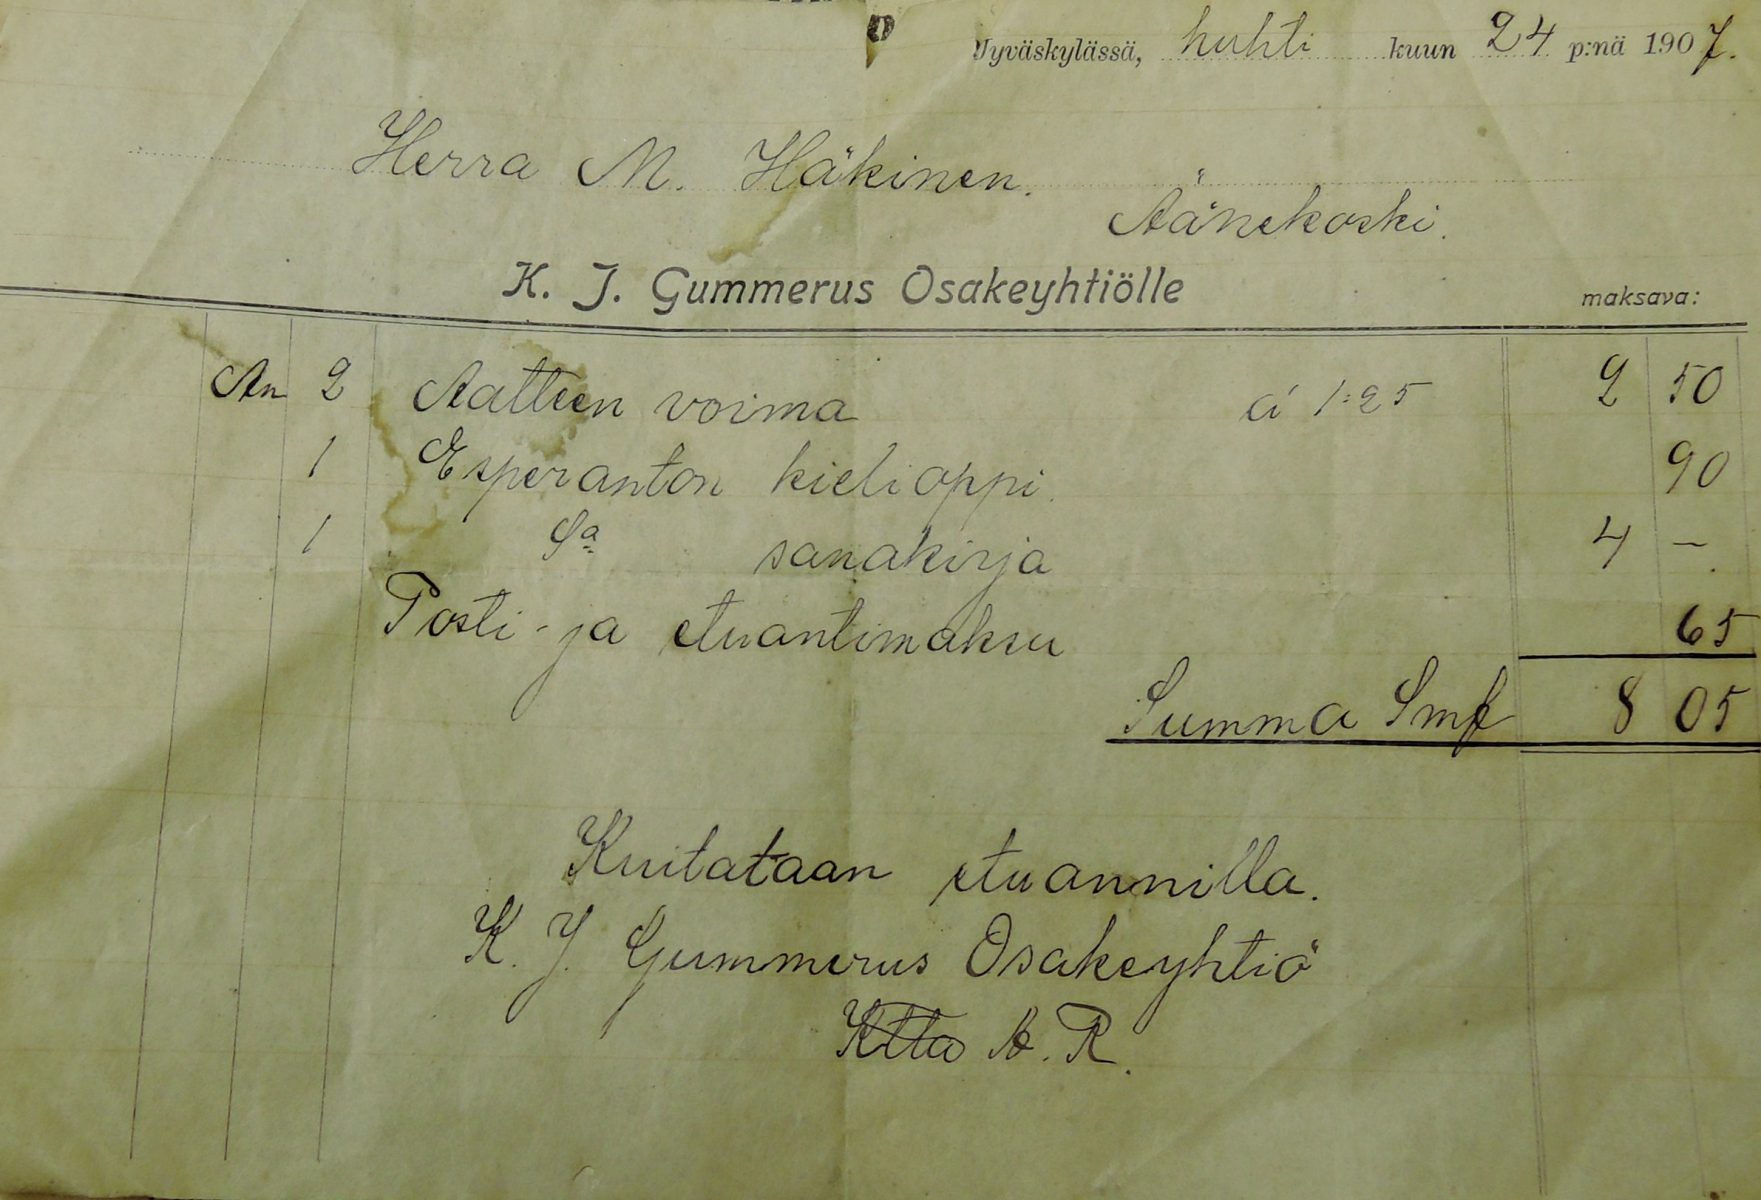 Jyväskylässä, huhti kuun 24 p:nä 1907.
Herra M. Häkinen.
Äänekoski.
K. J. Gummerus Osakeyhtiölle maksava:
An 2 Aatteen voima á 1:25 2 50
1 Esperanton kielioppi. 90
1 Sa sanakirja 4 –.
Posti- ja etuantimaksu 65
Summa Smk 8 05
Kuitataan etuannilla.
K. J. Gummerus Osakeyhtiö
A. R.